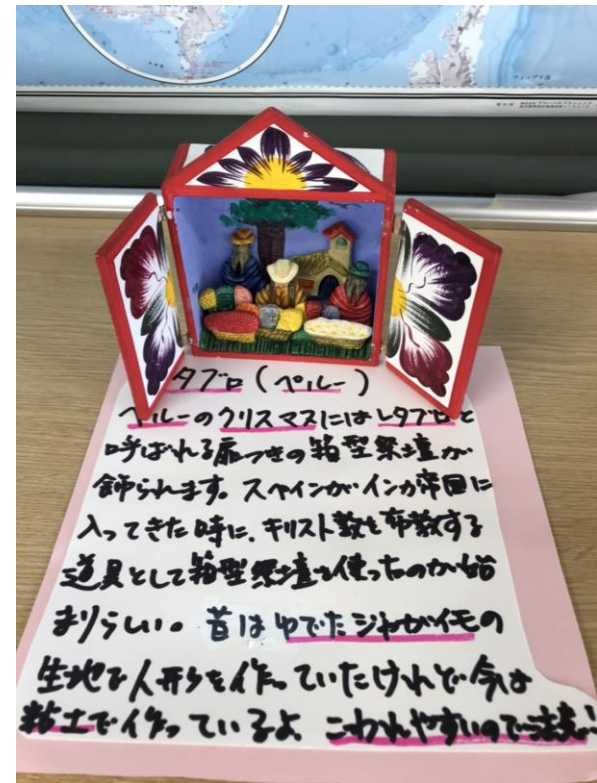 タブロ（ペルー）
ペルーのクリスマスにはレタブロと
呼ばれる扉つきの箱型祭壇が
飾られます。スペインがインカ帝国に
入ってきた時に、キリスト教を布教する
道具として箱型祭壇を使ったのが始
まりらしい。昔はゆでたジャガイモの
生地で人形を作っていたけれど今は
粘土で作っているよ こわれやすいので注意!